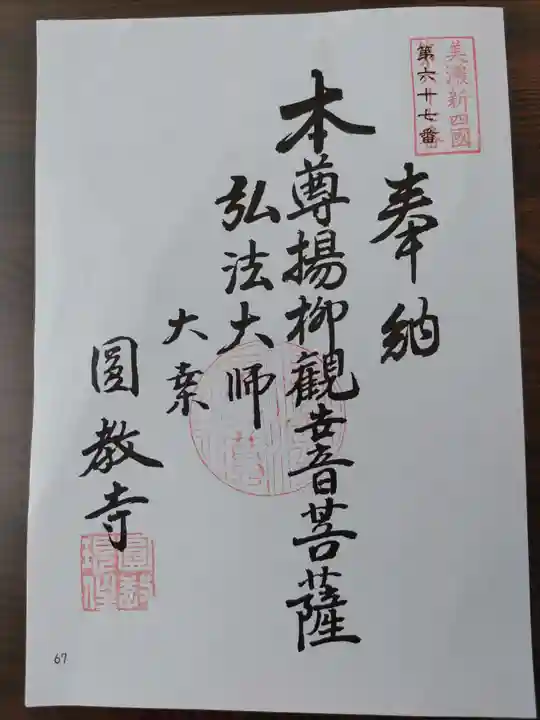 美濃新四國
第六十七番
奉納
本尊揚柳觀世音菩薩
弘法大师
大桒
圓教寺
67